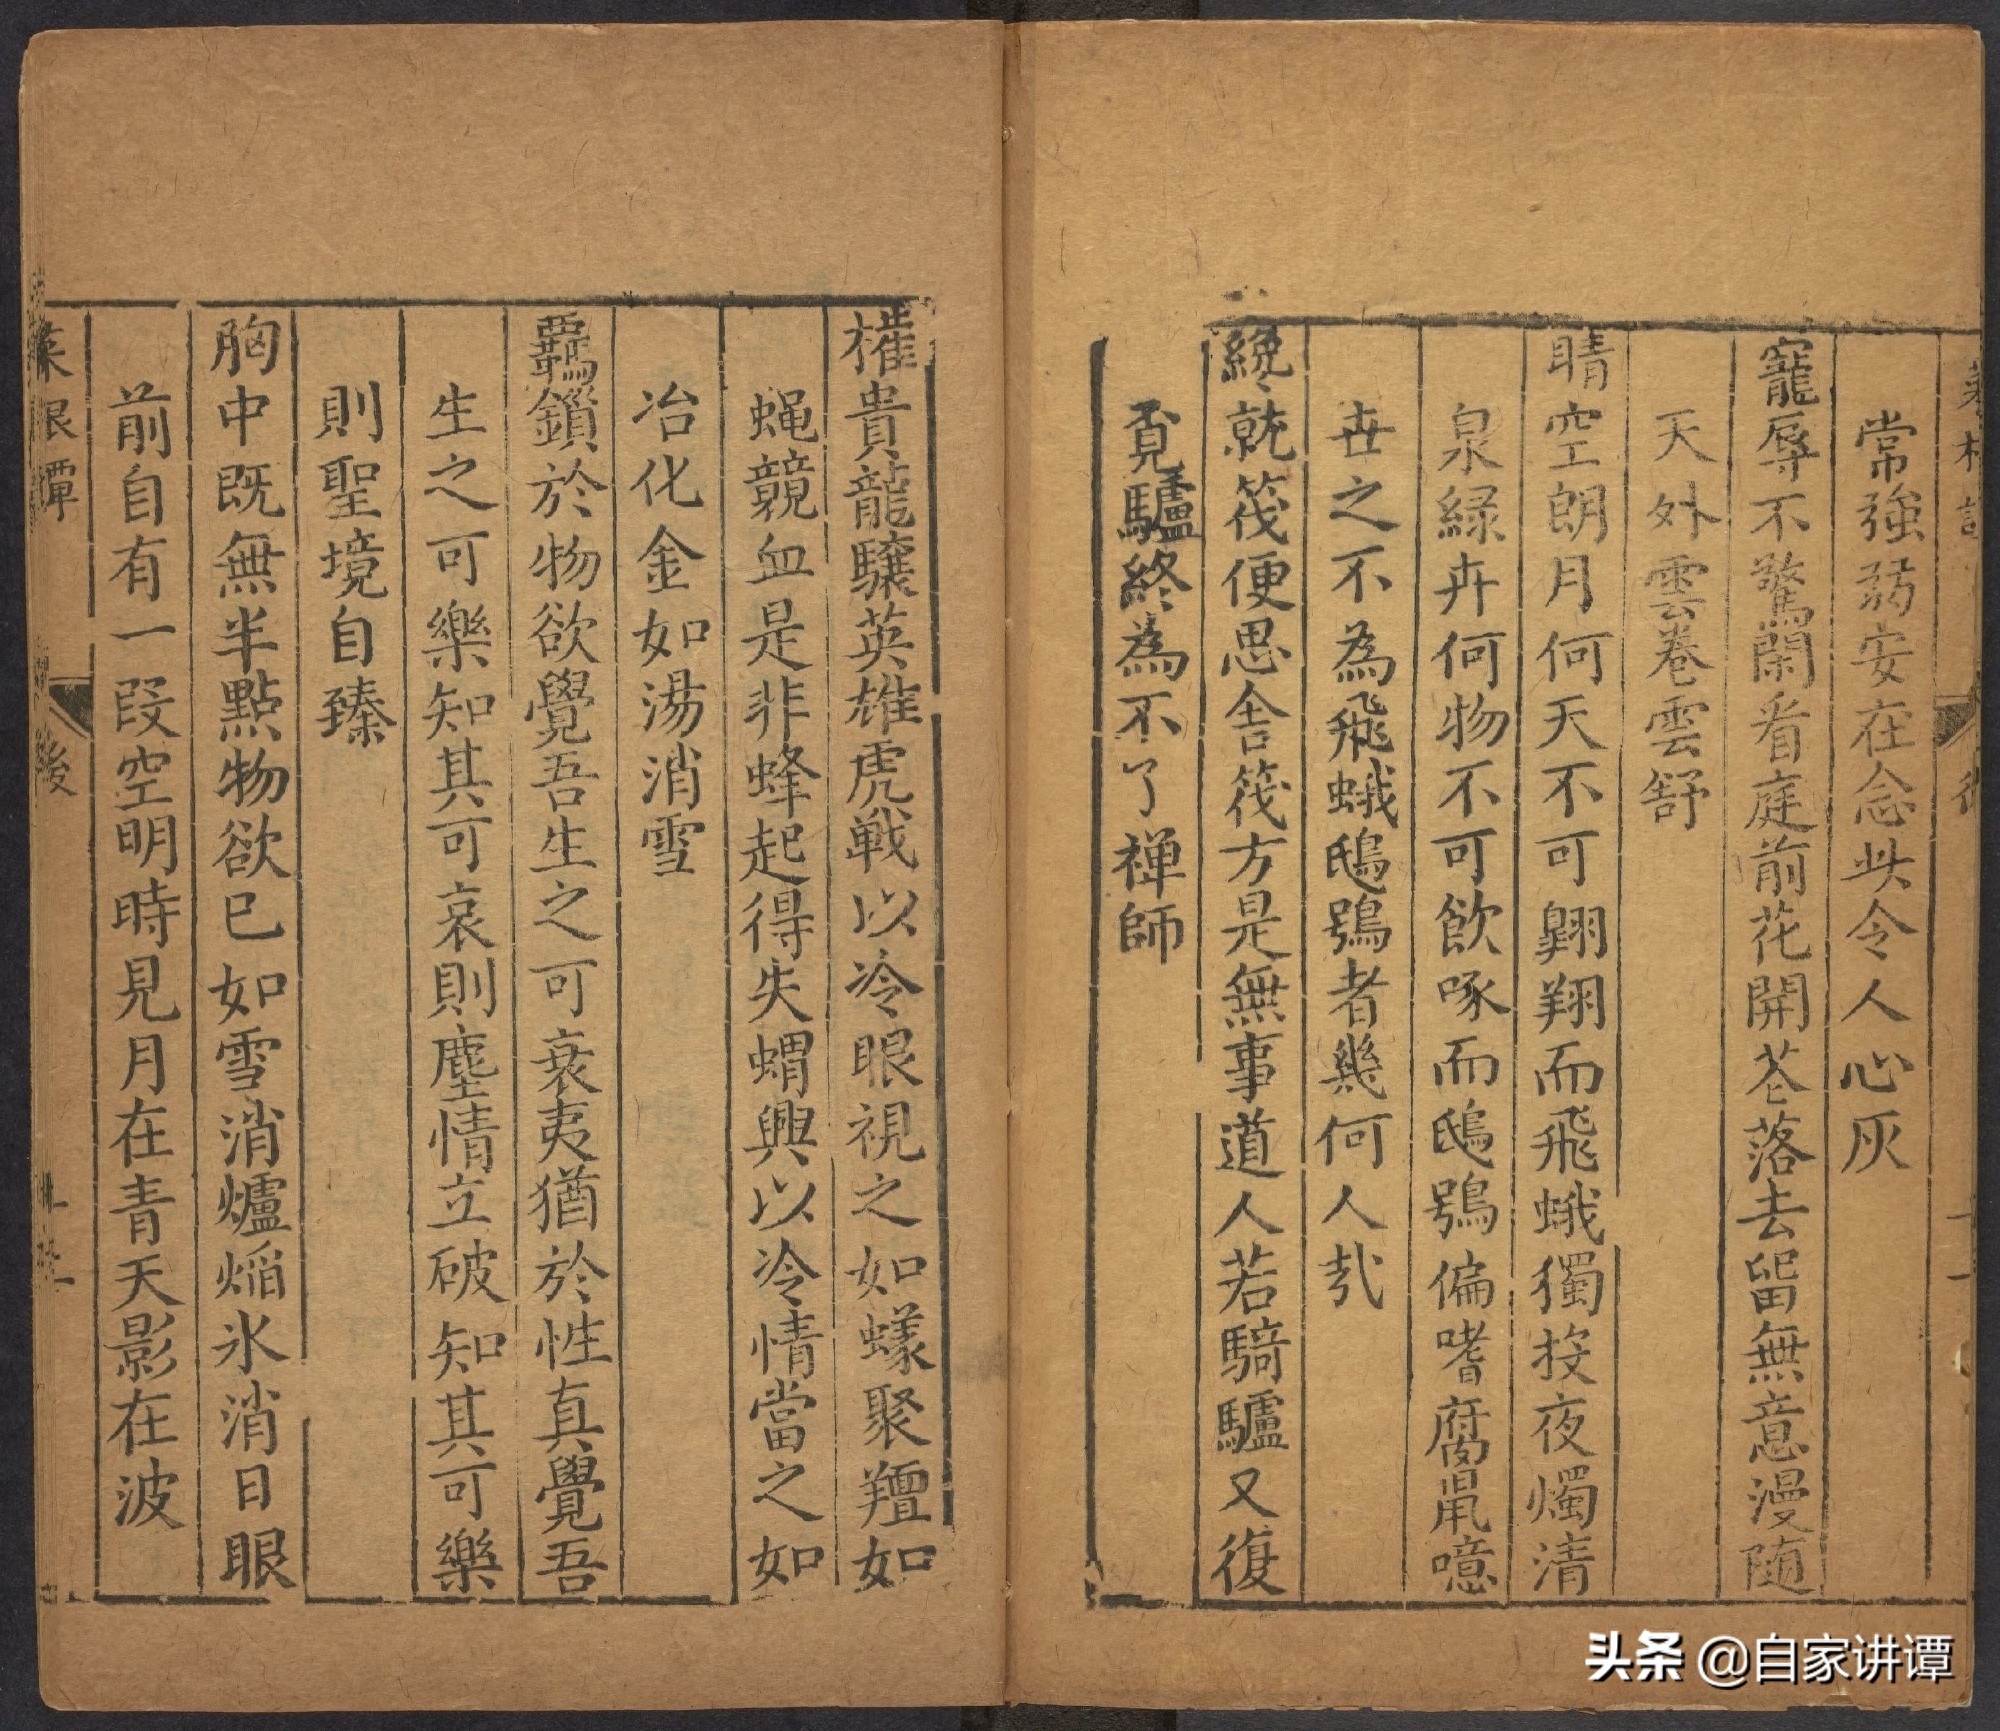 常強弱安在念此令人心灰
寵辱不驚閑看庭前花開花落去留無意漫隨
天外雲卷雲舒
晴空朗月何天不可翺翔而飛蛾獨投夜燭清
泉緑卉何物不可飲啄而鴟鴞偏嗜腐鼠噫
世之不為飛蛾鴟鴞者幾何人哉
纔就筏便思舎筏方是無事道人若騎驢又復
覓驢終為不了禅師
權貴龍驤英雄虎戦以冷眼視之如蟻聚羶如
蝿競血是非蜂起得失蝟興以冷情當之如
冶化金如湯消雪
羈鎖於物欲覺吾生之可哀夷猶於性真覺吾
生之可樂知其可哀則塵情立破知其可樂
則聖境自臻
胸中既無半點物欲已如雪消爐焰氷消日眼
前自有一段空明時見月在青天影在波
菜根譚 後
头条 @自家讲谭